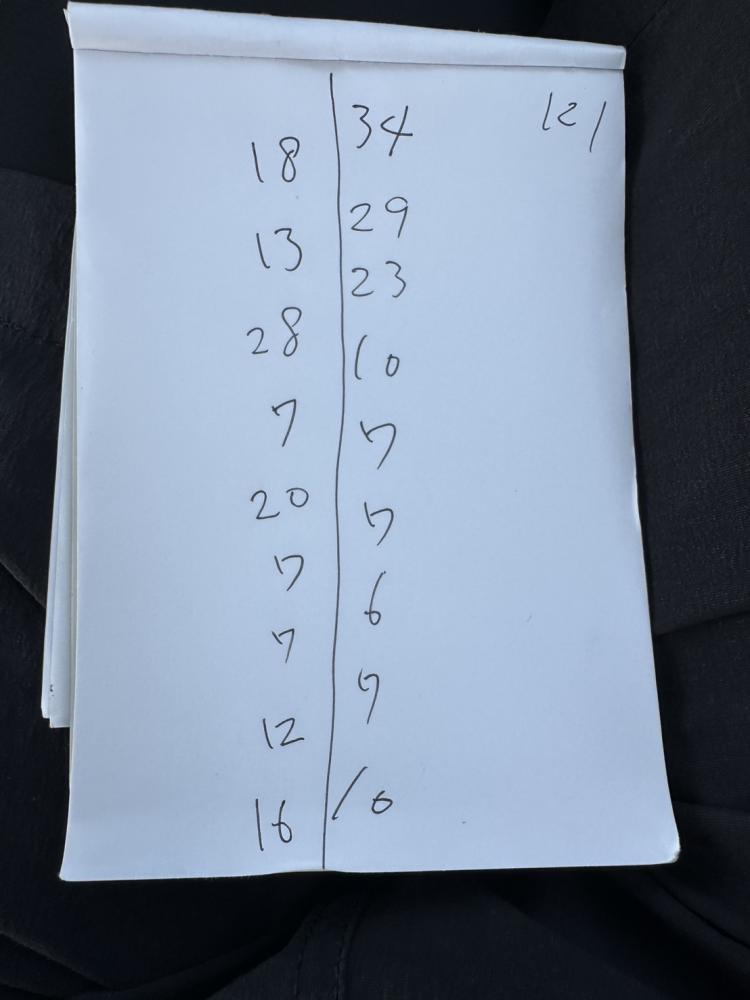 34 121
18
29
13
23
28
10
7
7
20
7
7
6
7
7
12
10
16